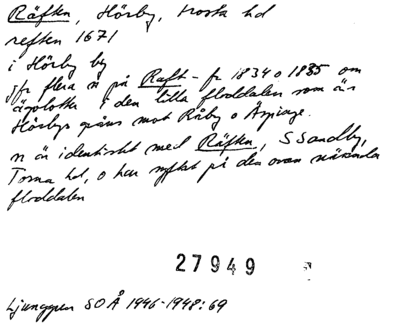 Räften, Hörby, Frosta hd
reften 1671
i Hörby by
jfr flera n på Raft- fr 1834 o 1835 om
ägolotter i den lilla floddalen som är
Hörbys gräns mot Råby o Äspinge.
n är identiskt med Räften, S Sandby,
Torna hd, o har syftat på den ovan nämnda
floddalen
27949
Ljunggren SOÅ 1946-1948:69